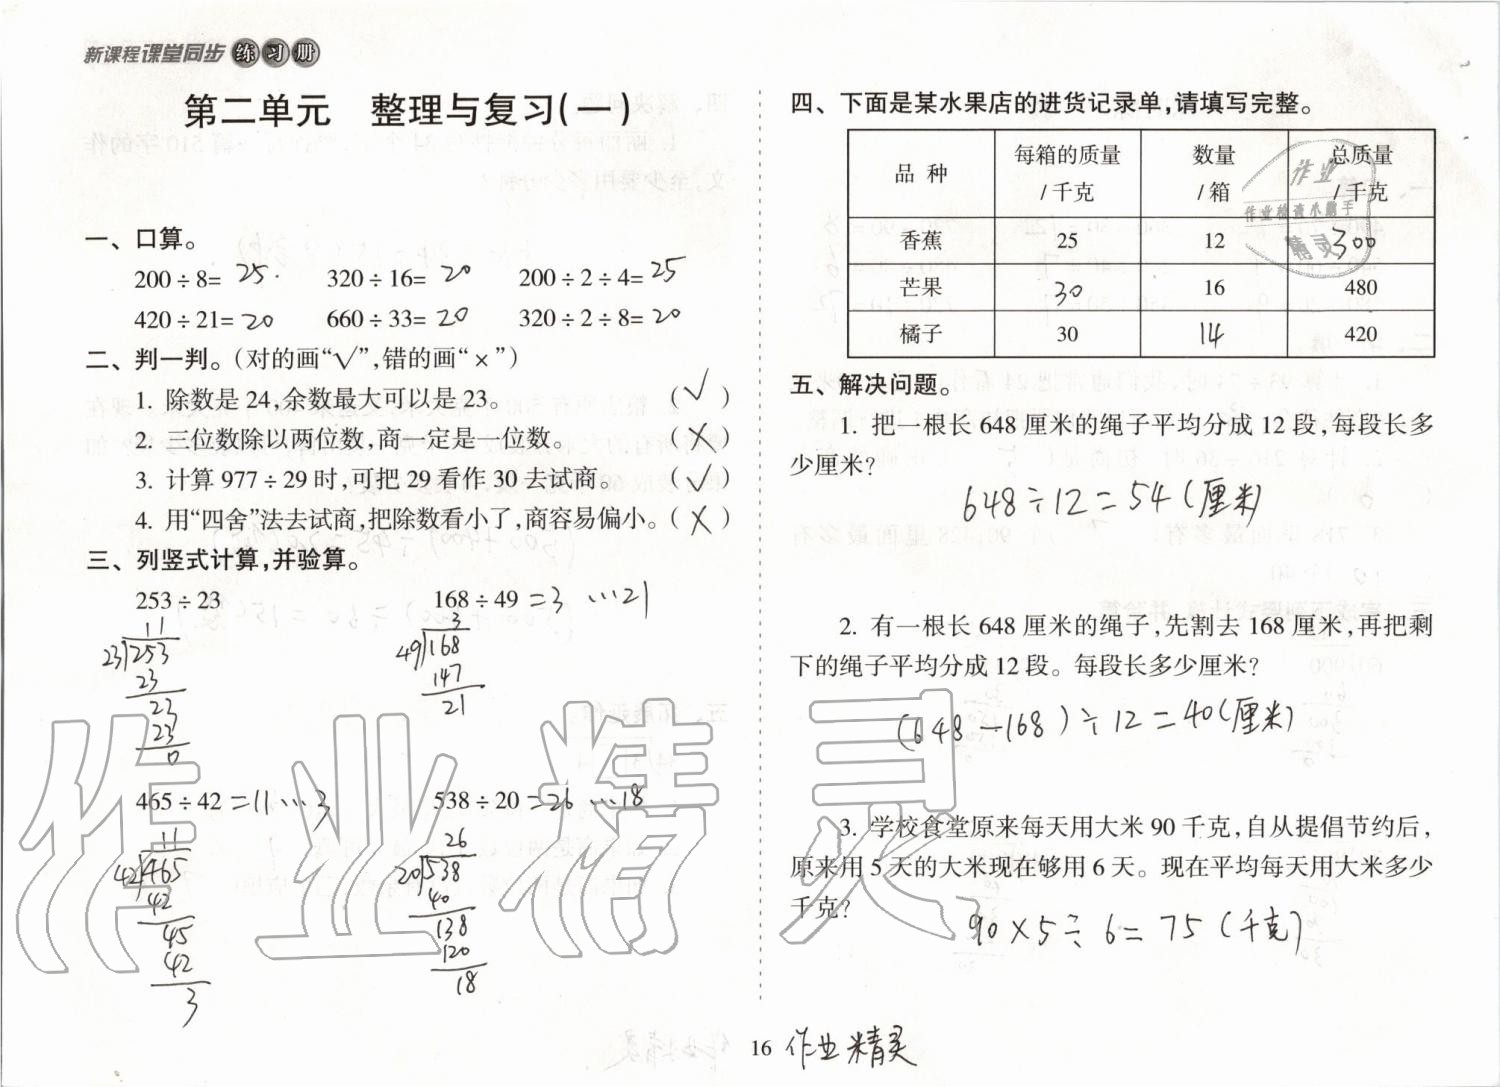 新课程课堂同步练习册
第二单元 整理与复习(一)
一、口算。
200÷8= 25. 320÷16= 20 200÷2÷4= 25
420÷21= 20 660÷33= 20 320÷2÷8= 20
二、判一判。(对的画“√”,错的画“×”)
1. 除数是24,余数最大可以是23。 (√)
2. 三位数除以两位数,商一定是一位数。 (×)
3. 计算977÷29时,可把29看作30去试商。 (√)
4. 用“四舍”法去试商,把除数看小了,商容易偏小。(×)
三、列竖式计算,并验算。
253÷23 168÷49 =3 …21
11 3
23 253 49 168
23 147
23 21
23
0
465÷42 =11 …3 538÷20 =26 …18
11 26
42 465 20 538
42 40
45 138
42 120
3 18
四、下面是某水果店的进货记录单,请填写完整。
品种 每箱的质量/千克 数量/箱 总质量/千克
香蕉 25 12 300
芒果 30 16 480
橘子 30 14 420
作业
作业检查小助手
精灵
五、解决问题。
1. 把一根长648厘米的绳子平均分成12段,每段长多
少厘米?
648÷12=54(厘米)
2. 有一根长648厘米的绳子,先割去168厘米,再把剩
下的绳子平均分成12段。每段长多少厘米?
(648-168)÷12=40(厘米)
3. 学校食堂原来每天用大米90千克,自从提倡节约后,
原来用5天的大米现在够用6天。现在平均每天用大米多少
千克?
90×5÷6=75(千克)
作业精灵
16 作业精灵